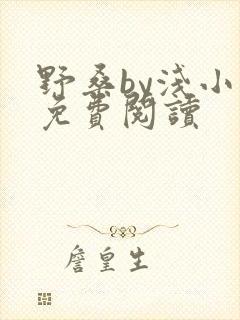 野桑by淺小
免費閱讀
詹皇生